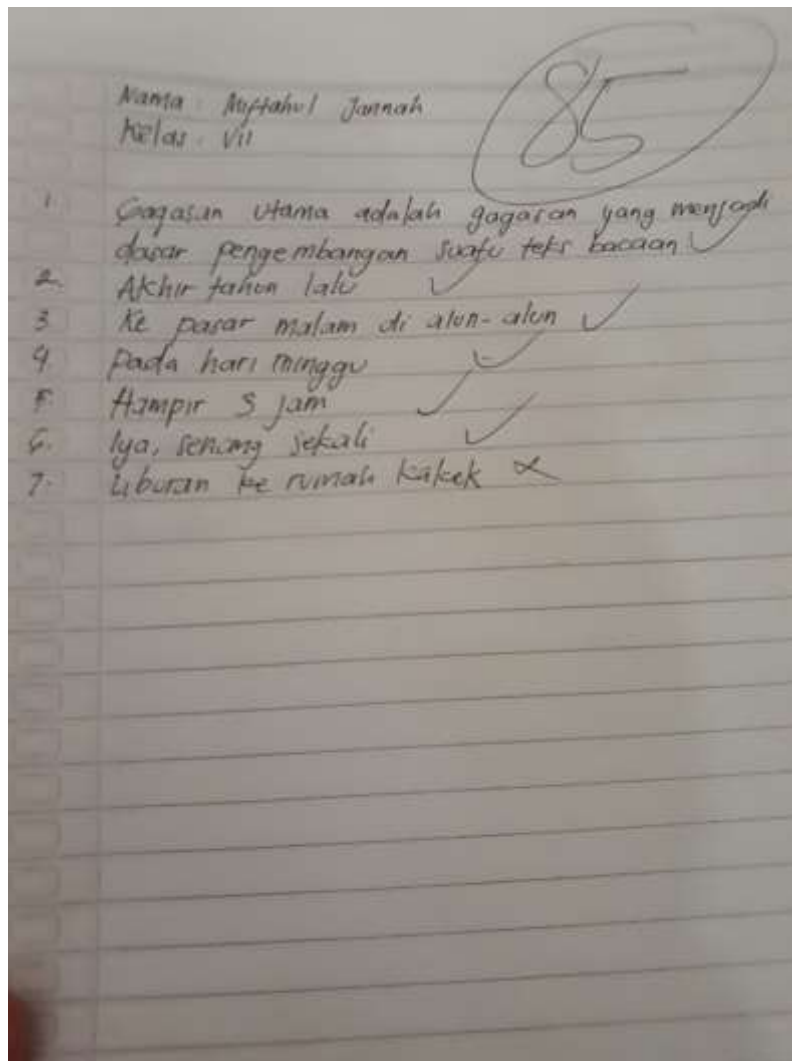 85
Nama : Miftahul Jannah
Kelas : VII
1. Gagasan utama adalah gagasan yang menjadi
dasar pengembangan suatu teks bacaan
2. Akhir tahun lalu
3. Ke pasar malam di alun-alun
4. Pada hari minggu
5. Hampir 3 jam
6. Iya, senang sekali
7. Liburan ke rumah kakek